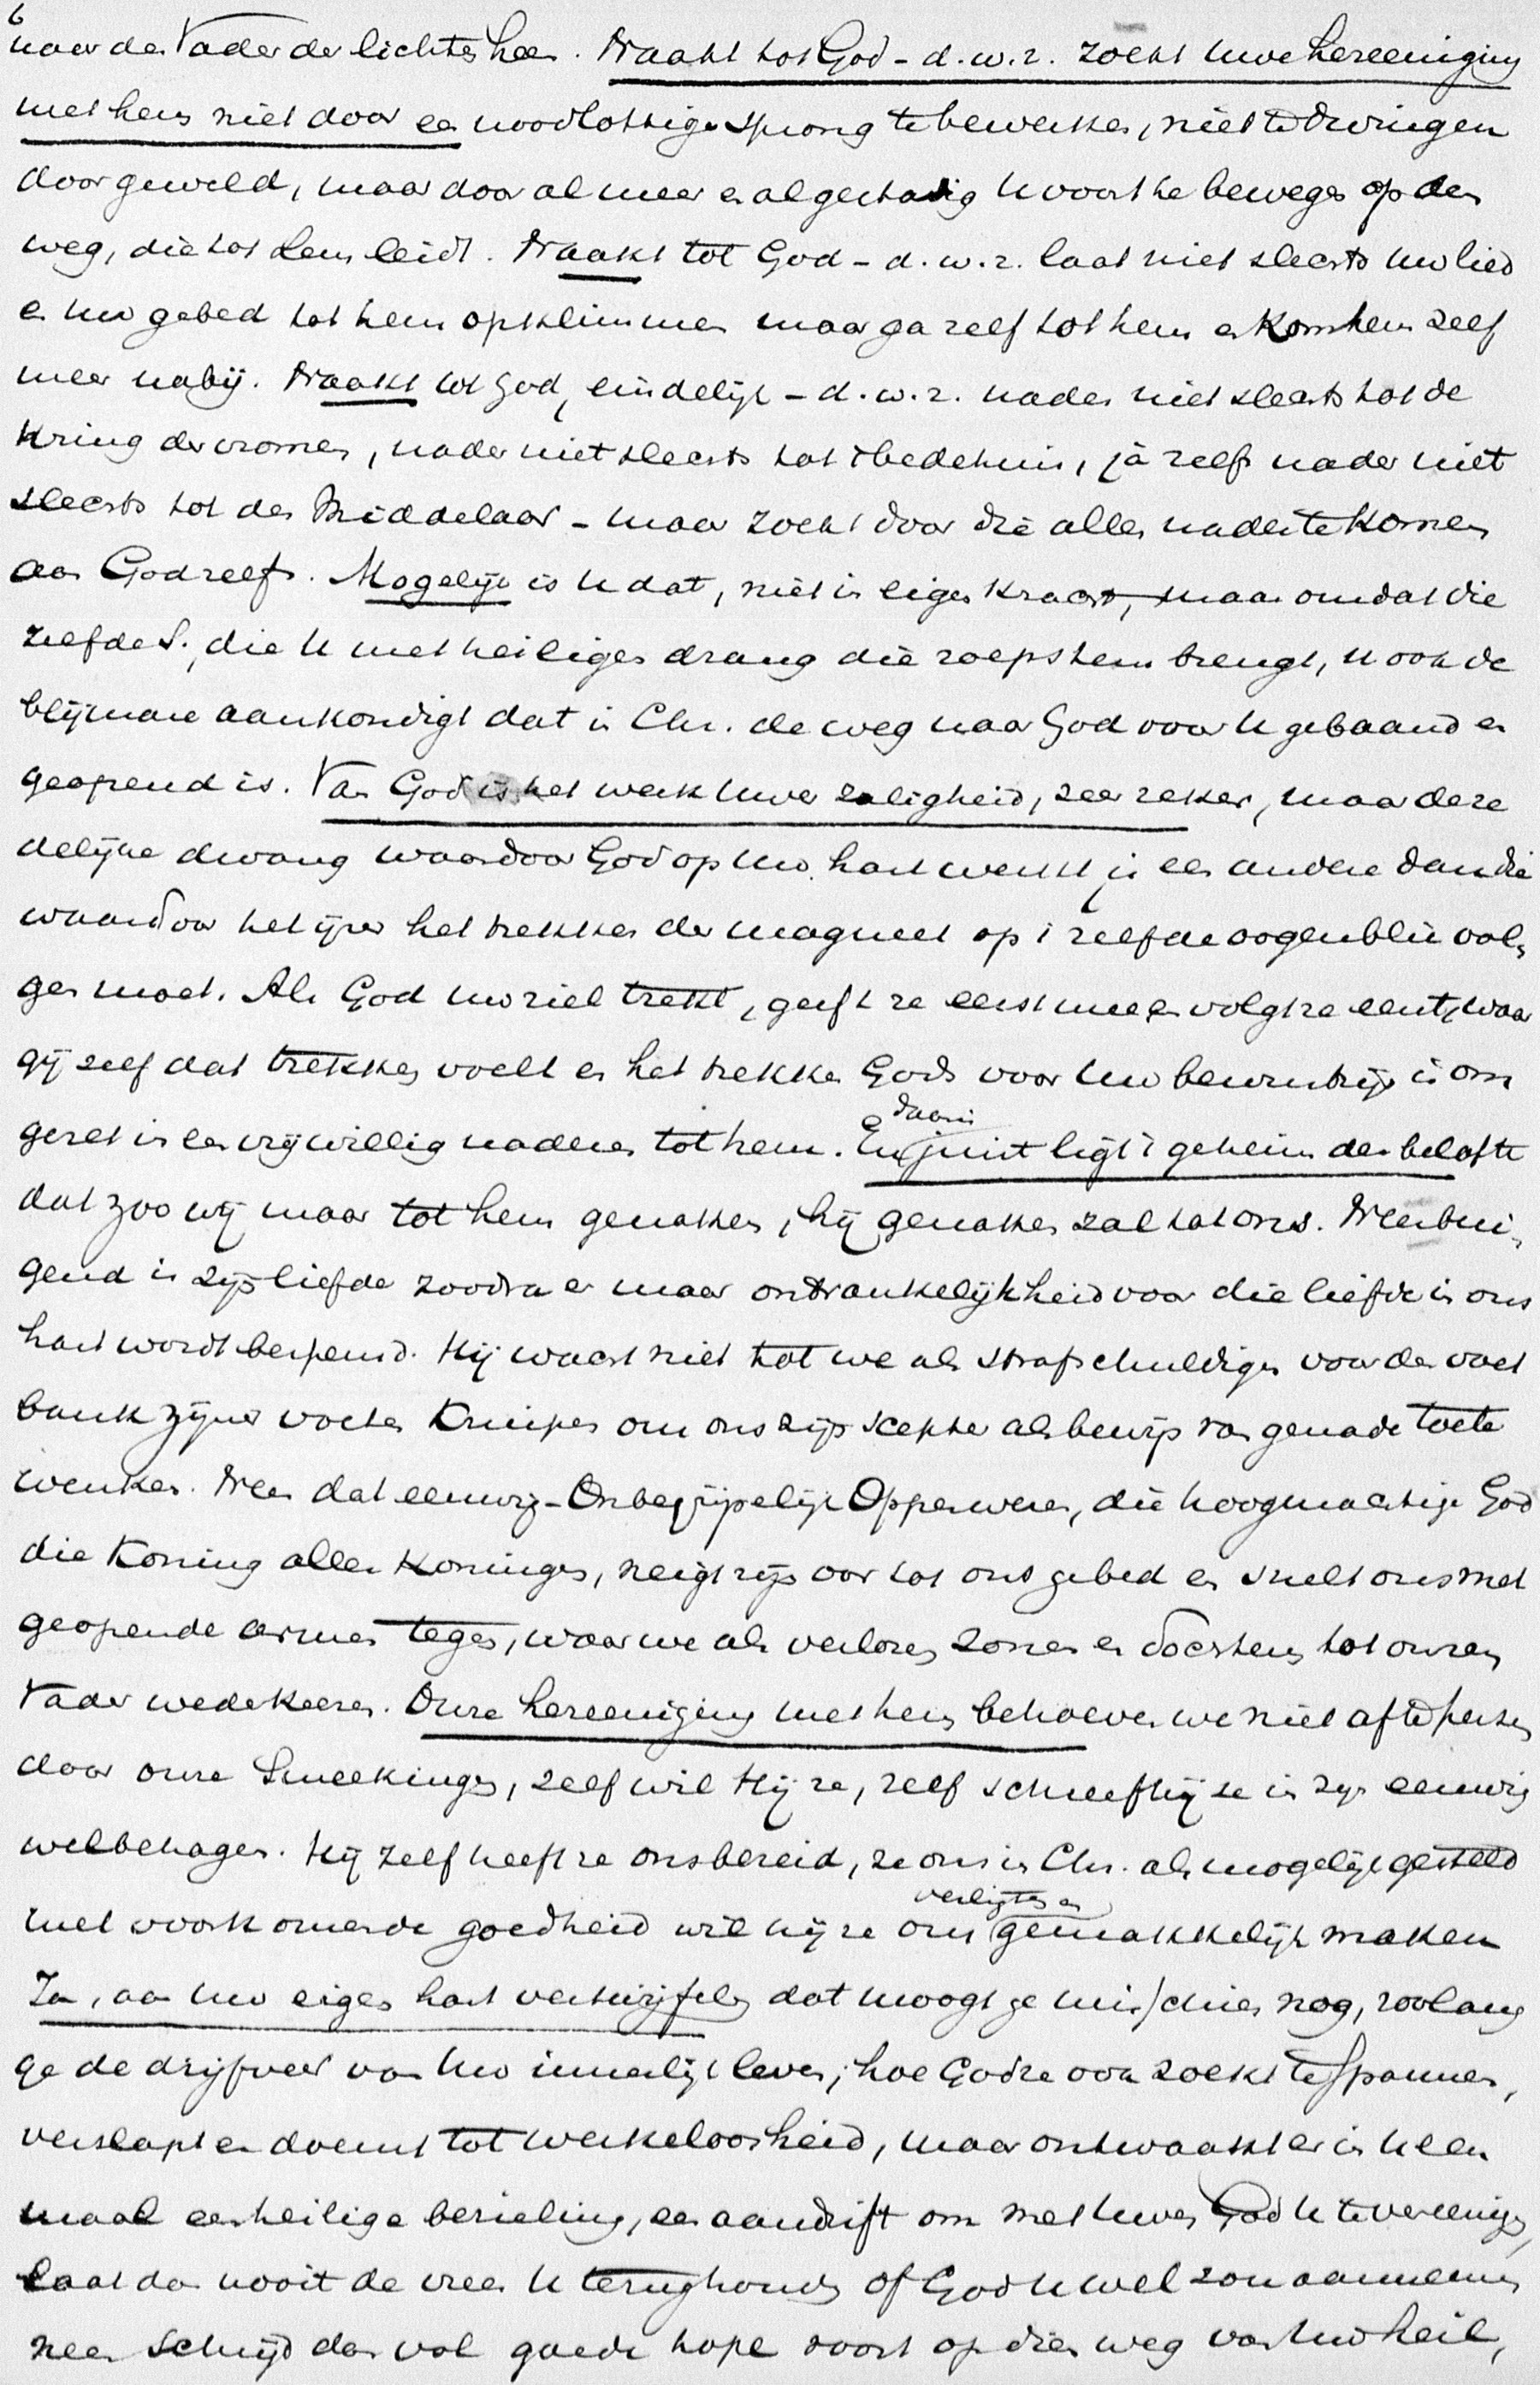 6
naar den Vader der lichten heen. Naakt tot God - d.w.z. zoekt uwe hereeniging
met hem niet door een noodlottigen sprong te bewerken, niet te dwingen
door geweld, maar door al meer en al gestadig U voort te bewegen op den
weg, die tot hem leidt. Naakt tot God - d.w.z. laat niet slechts uw lied
en uw gebed tot hem opklimmen maar ga zelf tot hem en kom hem zelf
meer nabij. Naakt tot God, eindelijk - d.w.z. nader niet slechts tot de
kring der vromen, nader niet slechts tot 't bedehuis, ja zelfs nader niet
slechts tot den Middelaar - maar zoekt door die allen nader te komen
aan God zelf. Mogelijk is U dat, niet in eigen kracht, maar omdat die
zelfde S., die U met heiligen drang die roepstem brengt, U ook de
blijmare aankondigt dat in Chr. de weg naar God voor U gebaand en
geopend is. Van God is het werk uwer zaligheid, zeer zeker, maar deze
delijke dwang waardoor God op uw hart werkt is een andere dan die
waardoor het ijzer het trekken der magneet op 't zelfde oogenblik vol-
gen moet. Als God uw ziel trekt, geeft ze eerst mee en volgt ze eerst, waar
gij zelf dat trekken voelt en het trekken Gods voor uw bewustzijn is om
gezet in een vrijwillig naderen tot hem. En juist daarin ligt 't geheim der belofte
dat zoo wij maar tot hem genaken, hij genaken zal tot ons. Neerbui-
gend is zijn liefde zoodra er maar ontvankelijkheid voor die liefde in ons
hart wordt bespeurd. Hij wacht niet tot we als strafschuldigen voor de voet
bank zijner voeten kruipen om ons zijn scepter als bewijs van genade toe te
wenken. Neen dat eeuwig-Onbegrijpelijk Opperwezen, die hoogmachtige God
die Koning aller Koningen, neigt zijn oor tot ons gebed en snelt ons met
geopende armen tegen, waar we als verloren zonen en dochters tot onzen
Vader wederkeeren. Onze hereeniging met hem behoeven we niet af te persen
door onze smeekingen, zelf wil Hij ze, zelf schreef hij ze in zijn eeuwig
welbehagen. Hij zelf heeft ze ons bereid, ze ons in Chr. als mogelijk gesteld
met voorkomende goedheid wil hij ze ons verligten en gemakkelijk maken
Ja, aan uw eigen hart vertwijfelen dat moogt ge misschien nog, zoolang
ge de drijfveer van uw innerlijk leven, hoe God ze ook zoekt te spannen,
verslapt en doemt tot werkeloosheid, maar ontwaakt er in U een
maal een heilige bezieling, een aandrift om met uwen God U te vereenigen,
laat dan nooit de vrees U terughouden of God U wel zou aannemen
neen schrijd dan vol goede hope voort op dien weg van uw heil,